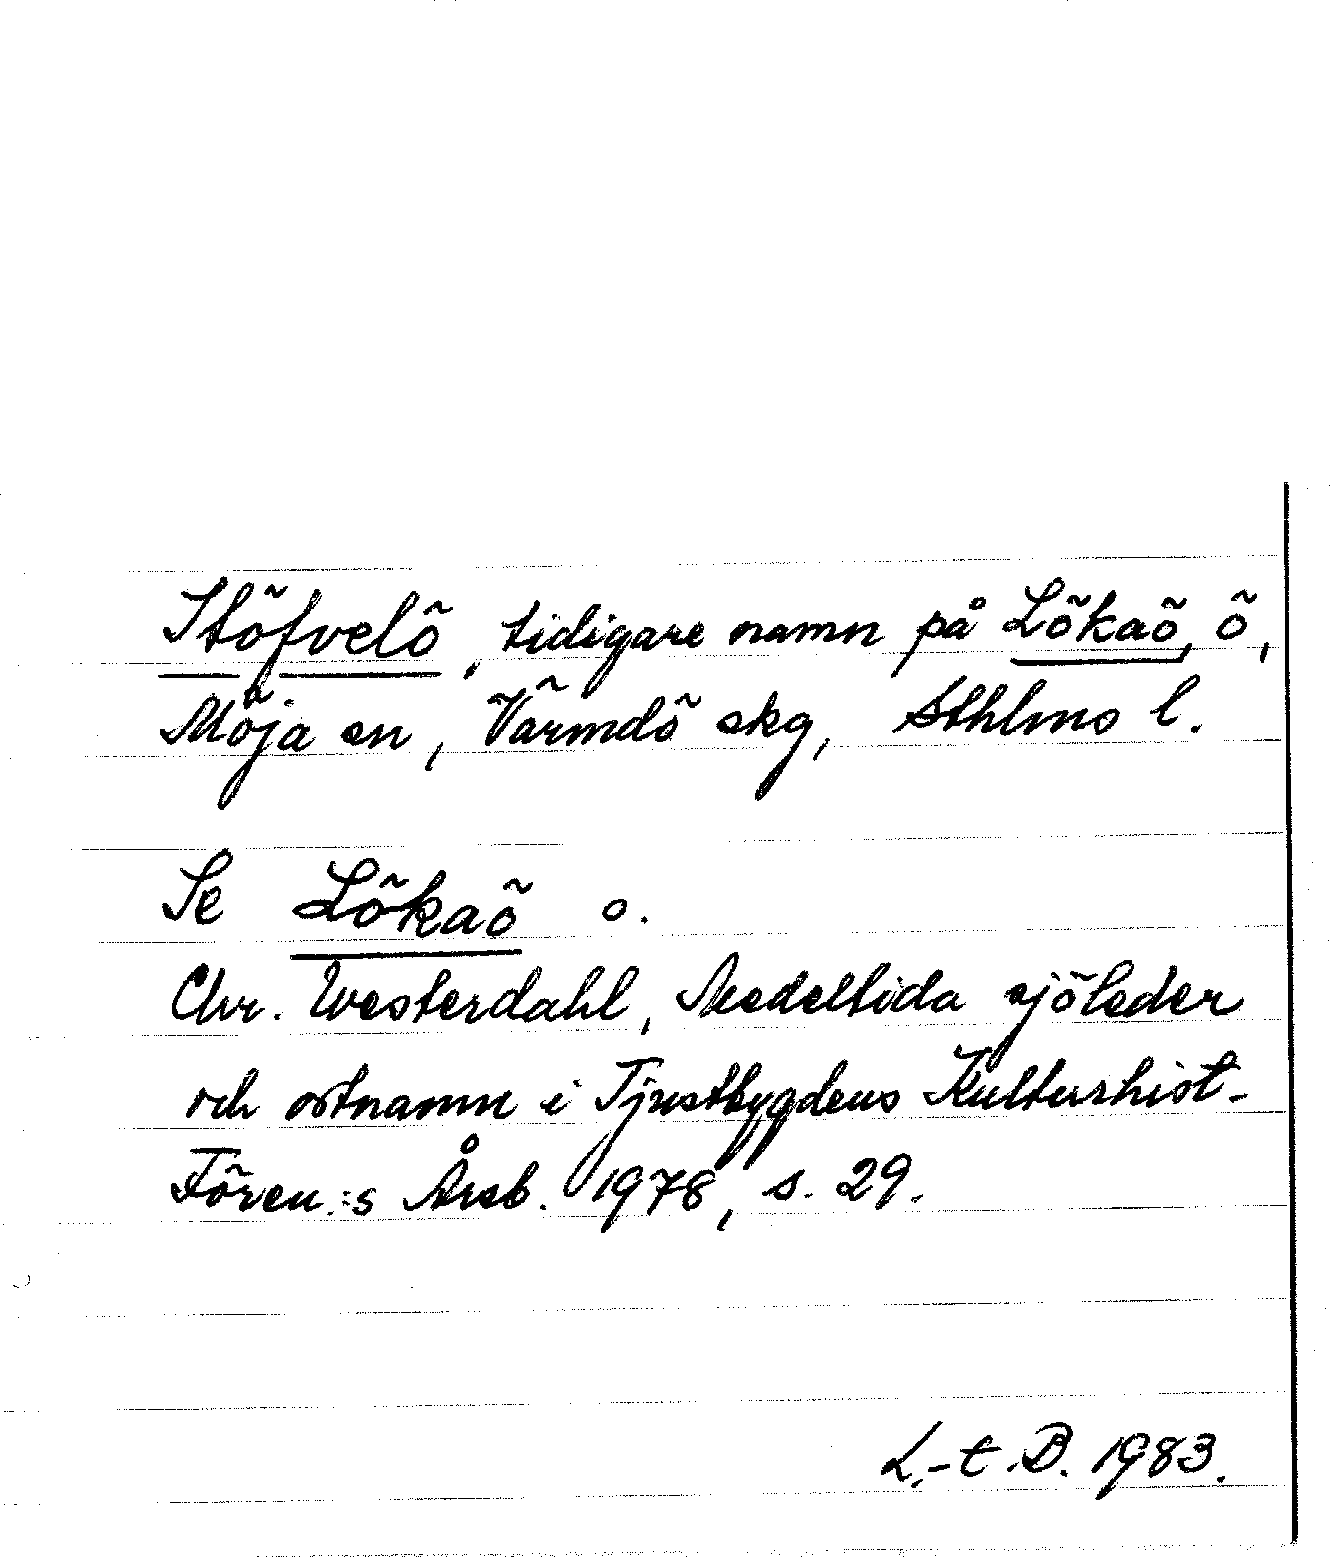 Stöfvelö, tidigare namn på Lökaö, ö,
Möja sn, Värmdö skg, Sthlms l.
Se Lökaö o.
Chr. Westerdahl, Medeltida sjöleder
och ortnamn i Tjustbygdens Kulturhist-
Fören.:s Årsb. 1978, s. 29.
L.-t. B. 1983.